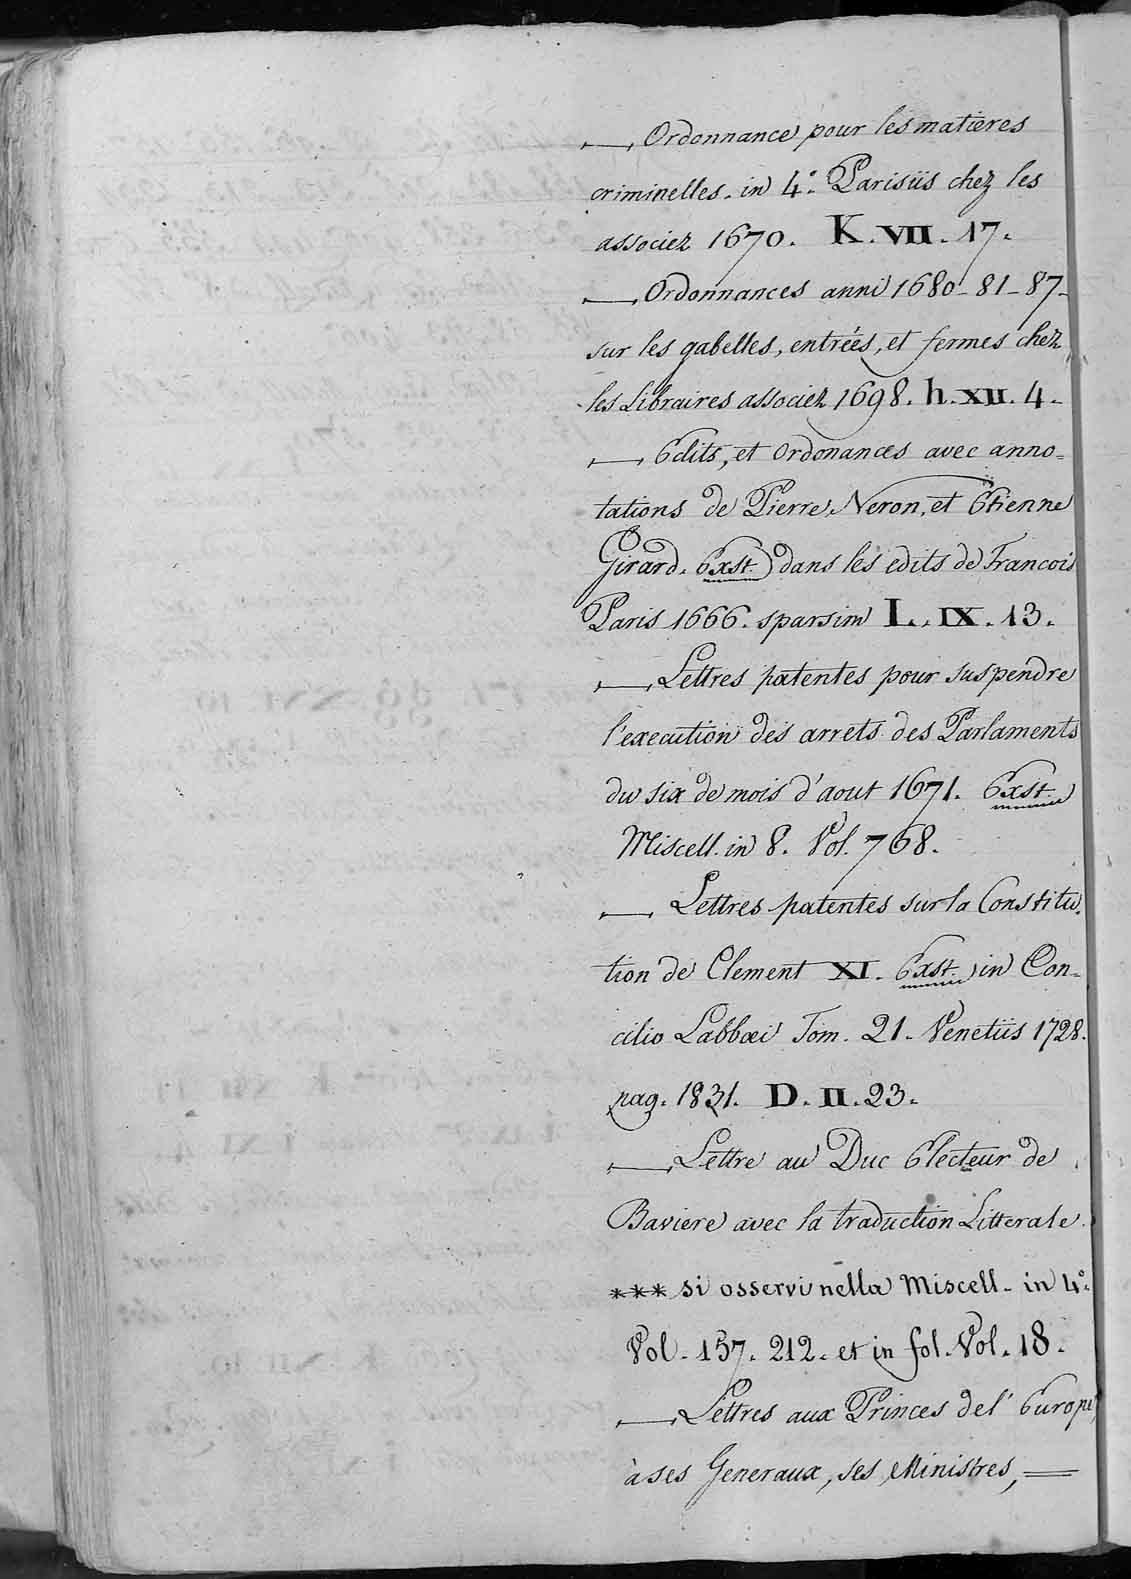 — Ordonnance pour les matieres
criminelles. in 4.° Parisiis chez les
associez 1670. K. VII. 17.
— Ordonnances anni 1680-81-87-
sur les gabelles, entrées, et fermes chez
les Libraires associez 1698. h. XII. 4.
— Edits, et Ordonances avec anno=
tations de Pierre Neron, et Etienne
Girard. Exst. dans les edits de Francois
Paris 1666. sparsim L. IX. 13.
— Lettres patentes pour suspendre
l'execution des arrets des Parlaments
du six de mois d'aout 1671. Exst.
Miscell. in 8. Vol. 768.
— Lettres patentes sur la Constitu-
tion de Clement XI. Exst. in Con=
cilio Labbæi Tom. 21. Venetiis 1728.
pag. 1831. D. II. 23.
— Lettre au Duc Electeur de
Baviere avec la traduction Litterale.
*** si osservi nella Miscell. in 4.°
Vol. 157. 212. et in fol. Vol. 18.
— Lettres aux Princes de l'Europe,
à ses Generaux, ses Ministres, =